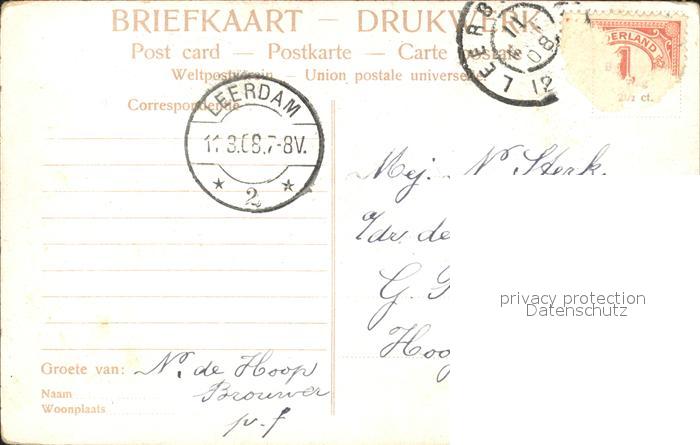 BRIEFKAART – DRUKWERK
Post card – Postkarte – Carte postale
Weltpostverein – Union postale universelle
Correspondentie
LEERDAM
11.3.08.7-8V.
2
11
08
12
1
2½ ct.
Mej. N Sterk.
de
G.
Hoo
privacy protection
Datenschutz
Groete van: N. de Hoop
Naam Brouwer
Woonplaats p.f